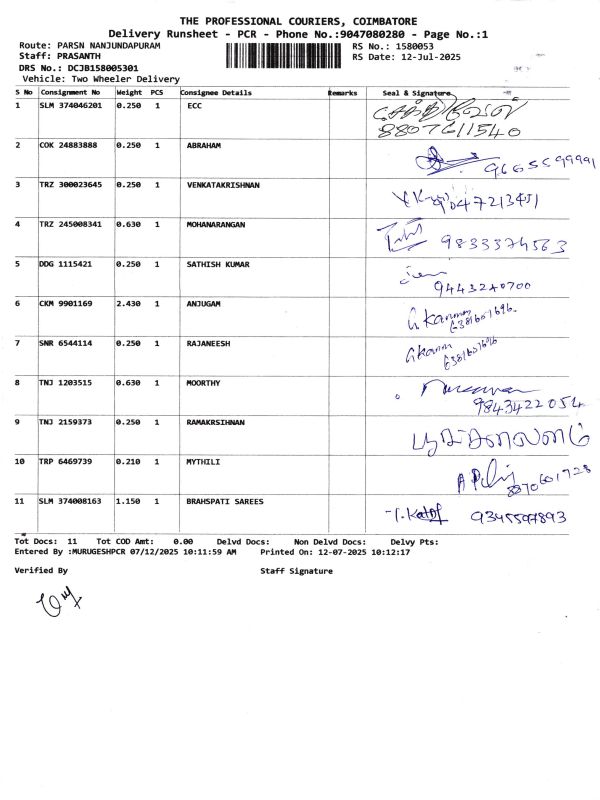 THE PROFESSIONAL COURIERS, COIMBATORE
Delivery Runsheet - PCR - Phone No.:9047080280 - Page No.:1
Route: PARSN NANJUNDAPURAM RS No.: 1580053
Staff: PRASANTH RS Date: 12-Jul-2025
DRS No.: DCJB158005301
Vehicle: Two Wheeler Delivery
S No Consignment No Weight PCS Consignee Details Remarks Seal & Signature
1 SLM 374046201 0.250 1 ECC
8807611540
2 COK 24883888 0.250 1 ABRAHAM
9665599991
3 TRZ 300023645 0.250 1 VENKATAKRISHNAN
9047213451
4 TRZ 245008341 0.630 1 MOHANARANGAN
9833374563
5 DDG 1115421 0.250 1 SATHISH KUMAR
9443240700
6 CKM 9901169 2.430 1 ANJUGAM
6381601696
7 SNR 6544114 0.250 1 RAJANEESH
6381601696
8 TNJ 1203515 0.630 1 MOORTHY
9843422054
9 TNJ 2159373 0.250 1 RAMAKRSIHNAN
10 TRP 6469739 0.210 1 MYTHILI
8870601728
11 SLM 374008163 1.150 1 BRAHSPATI SAREES
9345597893
Tot Docs: 11 Tot COD Amt: 0.00 Delvd Docs: Non Delvd Docs: Delvy Pts:
Entered By :MURUGESHPCR 07/12/2025 10:11:59 AM Printed On: 12-07-2025 10:12:17
Verified By Staff Signature